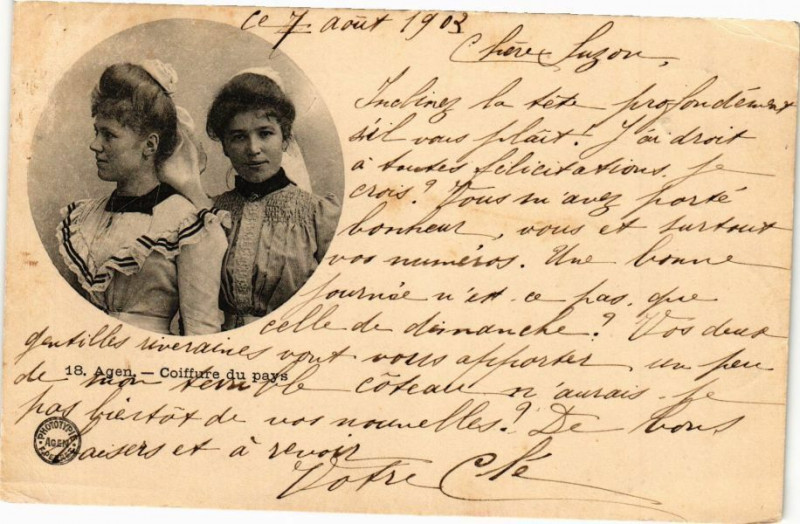 ce 7 août 1903
Chère Suzon,
Inclinez la tête profondément
s'il vous plaît! J'ai droit
à toutes félicitations, je
crois? Vous m'avez porté
bonheur, vous et surtout
vos numéros. Une bonne
journée n'est-ce pas, que
celle de dimanche? Vos deux
gentilles riveraines vont vous apporter un peu
18. Agen. — Coiffure du pays
de mon côteau n'aurais-je
pas bientôt de vos nouvelles? De bons
baisers et à revoir
Votre Clé
PHOTOTYPIE
AGEN